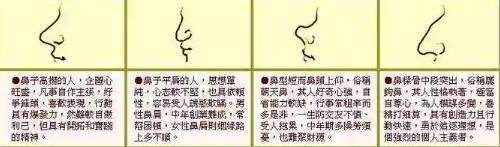 ●鼻子高挑的人，企圖心
旺盛，凡事自作主張，好
爭鋒頭，喜歡表現，行動
具有爆發力，然難較自傲
利己，但具有開拓和實踐
的精神。
●鼻子平肩的人，思想單
純，心志較不堅，也具依賴
性，容易受人誘惑欺瞞。男
性鼻扁，中年創業難成，常
陷困頓，女性鼻扁則姻緣路
上多不順。
●鼻型短而鼻頭上仰，俗稱
朝天鼻，其人好奇心強，自
省能力較缺，行事常粗率而
多是非，一生防交友不慎、
受人拖累，中年期多操勞煩
憂，也難聚財源。
●鼻樑骨中段突出，俗稱鷹
鉤鼻，其人性格執著，極富
自尊心，為人積謀多變，善
精打細算。具有創造力且行
動快速，勇於追逐理想，是
個強烈的個人主義者。